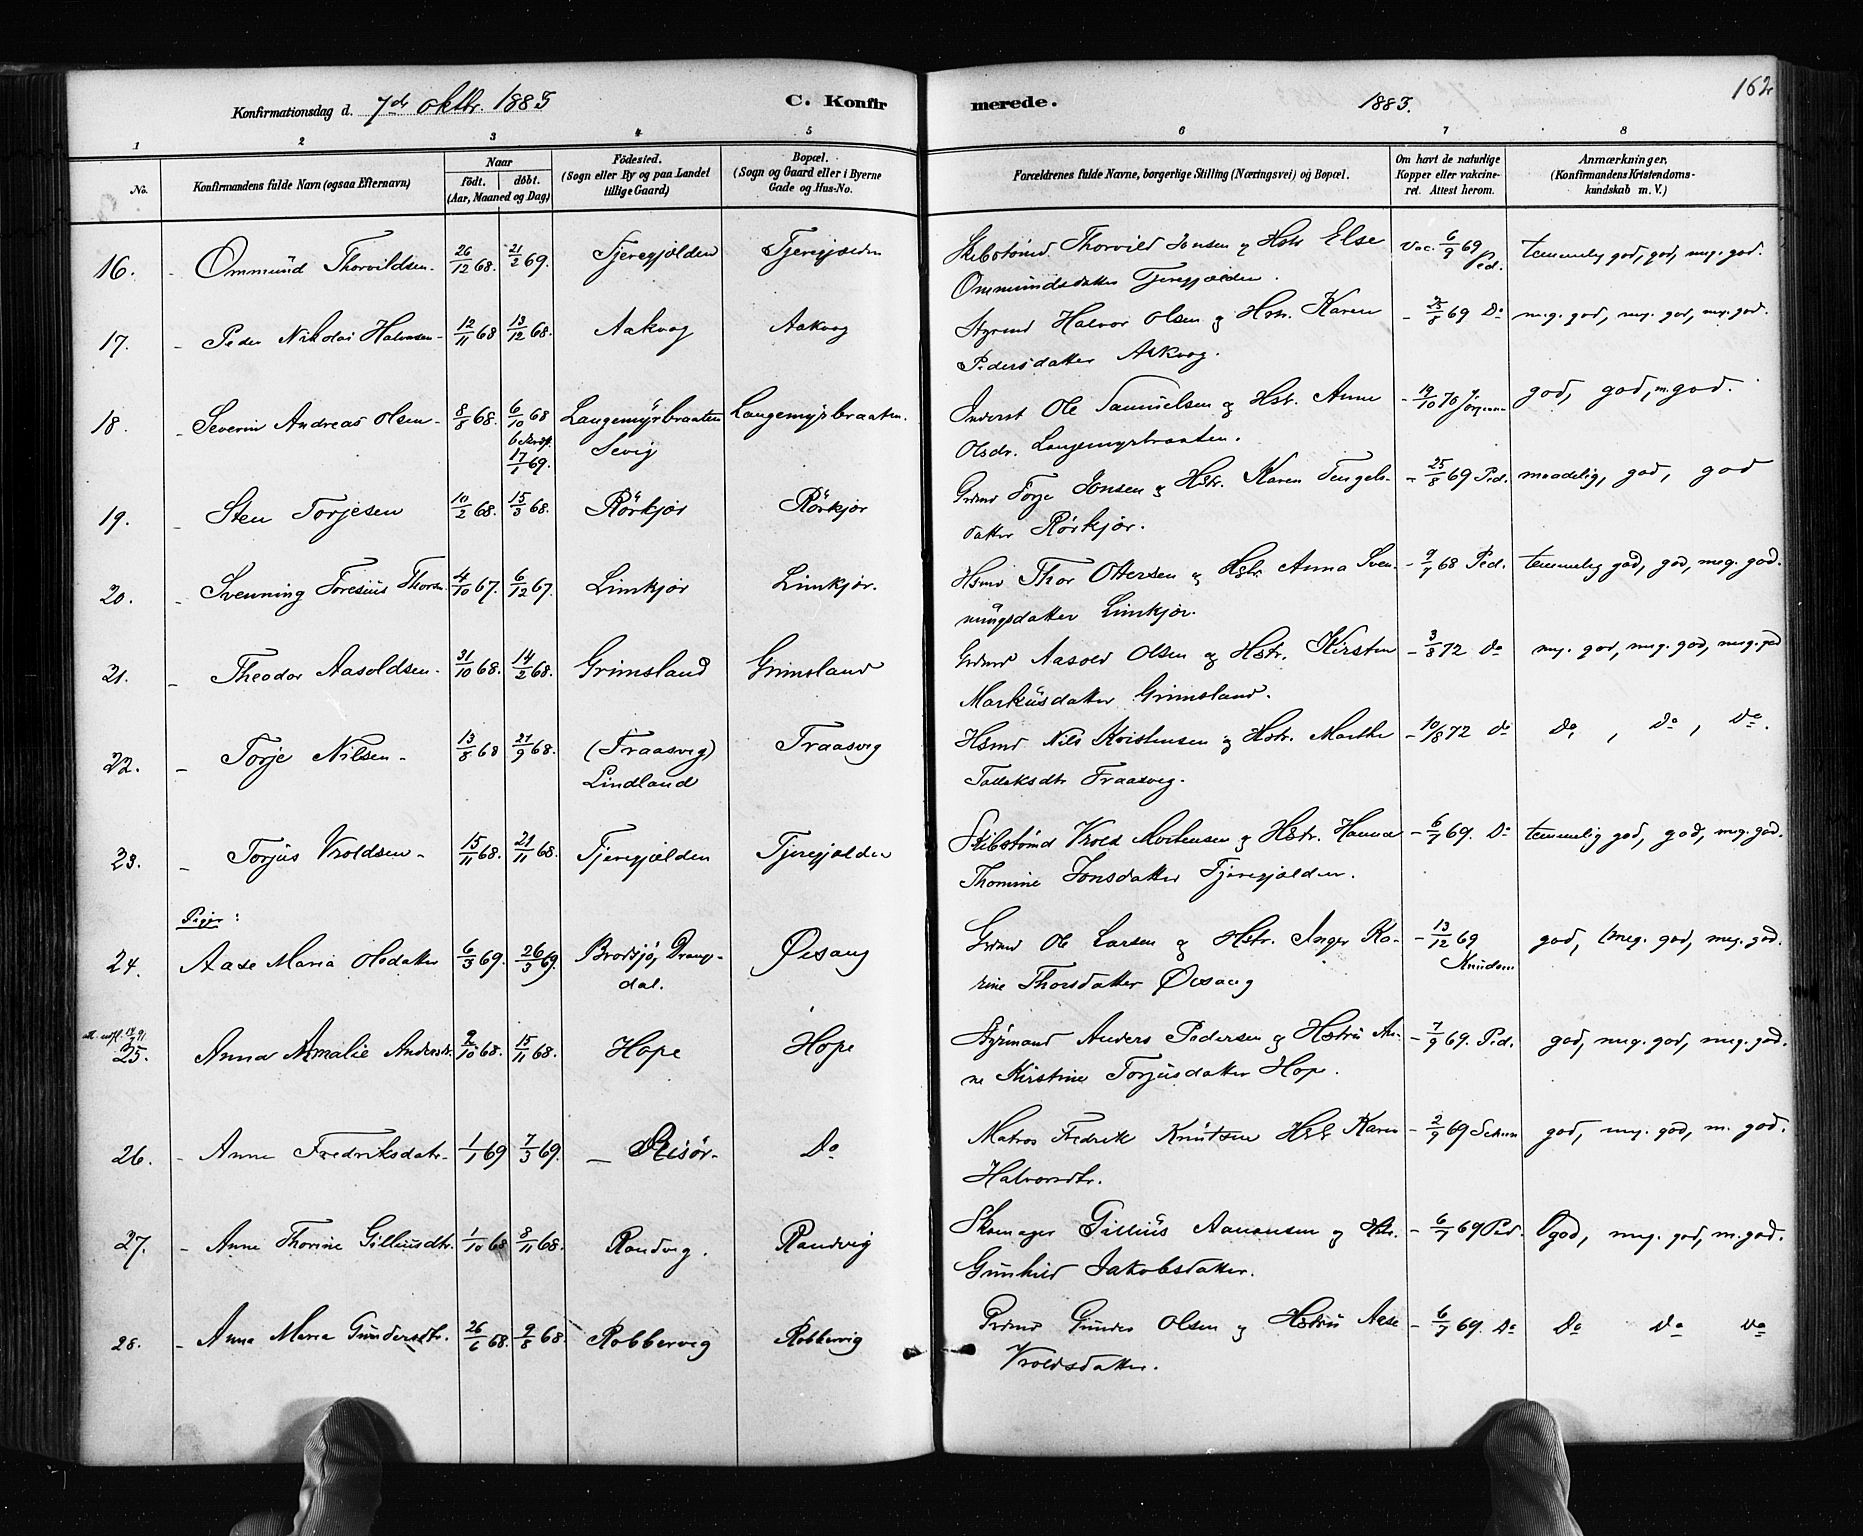 162
Konfirmationsdag d. 7de oktbr. 1883
C. Konfirmerede.
1883.
1 2 3 4 5 6 7 8
No.
Konfirmandens fulde Navn (ogsaa Efternavn)
Naar
födt. döbt.
(Aar, Maaned og Dag)
Födested.
(Sogn eller By og paa Landet
tillige Gaard)
Bopæl.
(Sogn og Gaard eller i Byerne
Gade og Hus-No.
Forældrenes fulde Navne, borgerlige Stilling (Næringsvei) og Bopæl.
Om havt de naturlige
Kopper eller vakcine-
ret. Attest herom.
Anmærkninger.
(Konfirmandens Kristendoms-
kundskab m. V.)
16. - Ommund Thorvildsen. 26/12 68. 21/2 69. Tjeregjælden Tjeregjælden Skibstømd. Thorvild Jonsen og Hstr. Else Vac. 6/9 69 Ped. temmelig god, god, meg. god.
Ommundsdatter Tjeregjælden.
17. - Peder Nikolai Halvorsen - 12/11 68 13/12 68. Aakvag Aakvag Styrmd Halvor Olsen og Hstr. Karen - 25/8 69 Do meg. god, meg. god, meg. god.
Pedersdatter Aakvag.
18. - Severin Andreas Olsen - 8/8 68. 6/10 68 Langemyrbraaten Langemyrbraaten. Inderst Ole Samuelsen og Hstr. Anne - 19/10 70 god, god, m. god.
17/1 69. Sevig Olsdr. Langemyrbraaten.
19. - Sten Torjesen 10/2 68. 15/3 68. Rörkjær Rörkjær Grdmd Torje Jonsen og Hstr. Karen Tengels- - 25/8 69 Ped. maadelig, god, god
datter Rörkjær.
20. - Svenning Toresius Thorsn. 4/10 67. 6/12 67. Limkjær Limkjær. Hsmd Thor Ottersen og Hstr. Anna Sven- - 9/7 68 Ped. temmelig god, god, meg. god.
ningsdatter Limkjær.
21. - Theodor Aasoldsen - 31/10 68. 14/2 68. Grimsland Grimsland Grdmd Aasold Olsen og Hstr. Kirsten - 3/8 72 Do meg. god, meg. god, meg. god
Markusdatter Grimsland.
22. - Torje Nilsen - 13/8 68 21/9 68. (Fraasvig) Fraasvig Hsmd Nils Kristensen og Hstr. Marthe - 10/8 72 Do Do, Do, Do.
Lindland Talleksdtr Fraasvig.
23. - Torjus Vroldsen - 15/11 68. 21/11 68. Tjeregjælden Tjeregjælden Skibstømd Vrold Mortensen og Hstr. Hanna - 6/9 69. Do temmelig god, god, meg. god.
Thomine Jonsdatter Tjeregjælden.
Piger:
24. Aase Maria Olsdatter 6/3 69. 26/3 69. Brodsjø, Drang- Øisang Grdmd Ole Larsen og Hstr. Inger Ka- - 13/12 69 god, meg. god, meg. god.
dal. rine Thorsdatter Øisang Knudsen
25. Anna Amalie Andersdtr. 9/10 68. 15/11 68. Hope Hope Styrmand Anders Pedersen og Hstru An- - 7/9 69. Ped. god, meg. god, meg. god.
ne Kirstine Torjusdatter Hope.
26. - Anne Fredriksdatr. 1/1 69 7/3 69. - Risör - Do Matros Fredrik Knutsen Hstr Karen - 2/9 69 god, meg. god, m. god.
Halvorsdtr.
27. - Anne Thorine Gilliusdtr. 1/10 68 8/11 68. Randvig. Randvig Skomager Gillius Aanonsen og Hstr. - 6/7 69 Ped. god, meg. god, m. god.
Gunhild Jakobsdatter.
28. - Anne Maria Gundersdtr. 26/6 68. 9/8 68. Robbervig Robbervig Grdmd Gunder Olsen og Hstru Aase - 6/7 69. Do Do Do Do
Vroldsdatter.